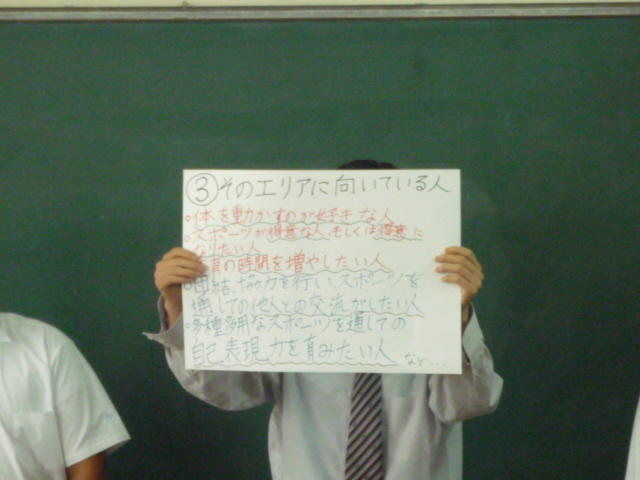 ③そのエリアに向いている人
○体を動かすのが好きな人
○スポーツが得意な人、もしくは得意に
なりたい人
○体育の時間を増やしたい人
○団結、協力を行い、スポーツを
通しての他人との交流がしたい人
○多種多用なスポーツを通しての
自己表現力を育みたい人 など…